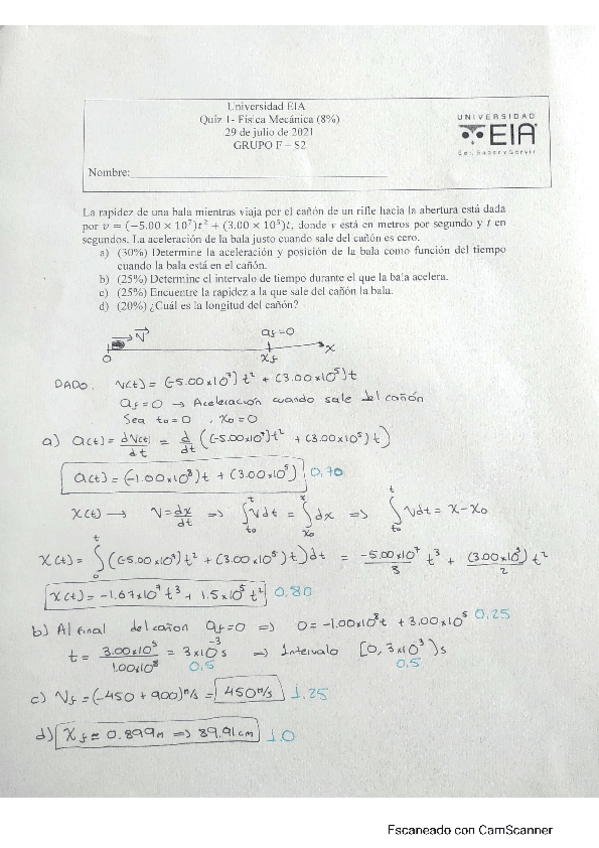 Universidad EIA
Quiz 1- Física Mecánica (8%)
29 de julio de 2021
GRUPO F – S2
UNIVERSIDAD
EIA
Ser, Saber y Servir
Nombre:
La rapidez de una bala mientras viaja por el cañón de un rifle hacia la abertura está dada
por v = (−5.00 × 10⁷)t² + (3.00 × 10⁵)t, donde v está en metros por segundo y t en
segundos. La aceleración de la bala justo cuando sale del cañón es cero.
a) (30%) Determine la aceleración y posición de la bala como función del tiempo
cuando la bala está en el cañón.
b) (25%) Determine el intervalo de tiempo durante el que la bala acelera.
c) (25%) Encuentre la rapidez a la que sale del cañón la bala.
d) (20%) ¿Cuál es la longitud del cañón?
→ V⃗ a_f=0
0 x_f x
DADO. V(t) = (-5.00x10⁷) t² + (3.00x10⁵)t
a_f=0 → Aceleración cuando sale del cañón
Sea t₀=0 , x₀=0
a) a(t)= dV(t)/dt = d/dt ((-5.00x10⁷)t² + (3.00x10⁵)t)
a(t) = (-1.00x10⁸)t + (3.00x10⁵) 0.70
X(t) → V=dx/dt => ∫_t₀^t Vdt = ∫_x₀^x dx => ∫_t₀^t Vdt = X-X₀
X(t) = ∫_0^t ((-5.00x10⁷)t² + (3.00x10⁵)t)dt = -5.00x10⁷/3 t³ + (3.00x10⁵)/2 t²
X(t) = -1.67x10⁷t³ + 1.5x10⁵t² 0.80
b) Al final del cañon a_f=0 => 0=-1.00x10⁸t + 3.00x10⁵ 0.25
t = 3.00x10⁵/1.00x10⁸ = 3x10⁻³s => Intervalo [0, 3x10⁻³)s
0.5 0.5
c) V_f = (-450 + 900)m/s = 450m/s 1.25
d) X_f ≈ 0.899m => 89.91cm 1.0
Escaneado con CamScanner